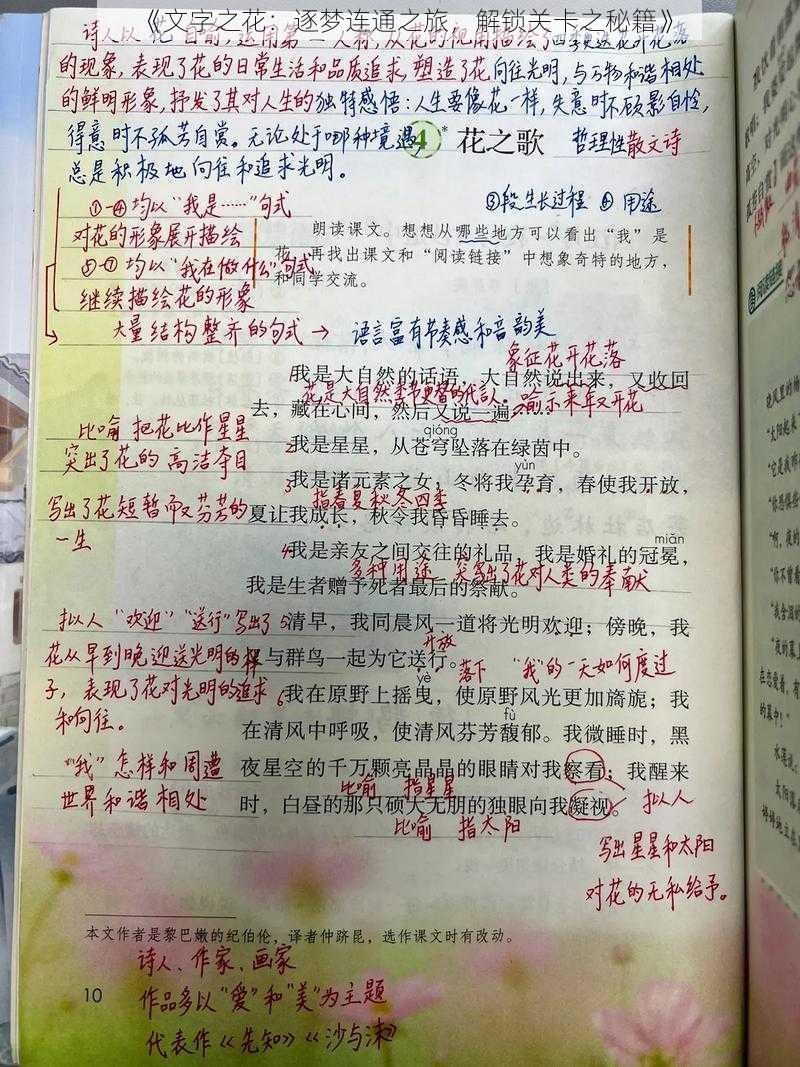 《文字之花：逐梦连通之旅，解锁关卡之秘籍》
诗人以"花"自喻，运用第一人称，从花的视角描绘了四季更迭花开花落
的现象，表现了花的日常生活和品质追求，塑造了花向往光明，与万物和谐相处
的鲜明形象，抒发了其对人生的独特感悟：人生要像花一样，失意时不顾影自怜，
得意时不孤芳自赏。无论处于哪种境遇，
总是积极地向往和追求光明。
4* 花之歌
哲理性散文诗
①-④均以"我是……"句式
对花的形象展开描绘
⑤-⑦均以"我在做什么"句式
继续描绘花的形象
大量结构整齐的句式→ 语言富有节奏感和音韵美
③段生长过程 ④用途
朗读课文。想想从哪些地方可以看出“我”是
花，再找出课文和“阅读链接”中想象奇特的地方，
和同学交流。
象征花开花落
我是大自然的话语，大自然说出来，又收回
花是大自然季节更替的代言人。喻示来年又开花
去，藏在心间，然后又说一遍……
qióng
比喻 把花比作星星
突出了花的高洁夺目
2我是星星，从苍穹坠落在绿茵中。
yùn
3我是诸元素之女：冬将我孕育，春使我开放，
指春夏秋冬四季
写出了花短暂而又芬芳的
一生
夏让我成长，秋令我昏昏睡去。
miǎn
4我是亲友之间交往的礼品，我是婚礼的冠冕，
多种用途 突出了花对人类的奉献
我是生者赠予死者最后的祭献。
拟人"欢迎""送行"写出了
花从早到晚迎送光明的样
子，表现了花对光明的追求
和向往。
5清早，我同晨风一道将光明欢迎；傍晚，我
开放
又与群鸟一起为它送行。
落下 "我"的一天如何度过
yè
6我在原野上摇曳，使原野风光更加旖旎；我
fù
在清风中呼吸，使清风芬芳馥郁。我微睡时，黑
"我"怎样和周遭
世界和谐相处
夜星空的千万颗亮晶晶的眼睛对我察看；我醒来
比喻 指星星
时，白昼的那只硕大无朋的独眼向我凝视。
拟人
比喻 指太阳
写出星星和太阳
对花的无私给予。
本文作者是黎巴嫩的纪伯伦，译者仲跻昆，选作课文时有改动。
诗人、作家、画家
10
作品多以"爱"和"美"为主题
代表作《先知》《沙与沫》
阅读链接